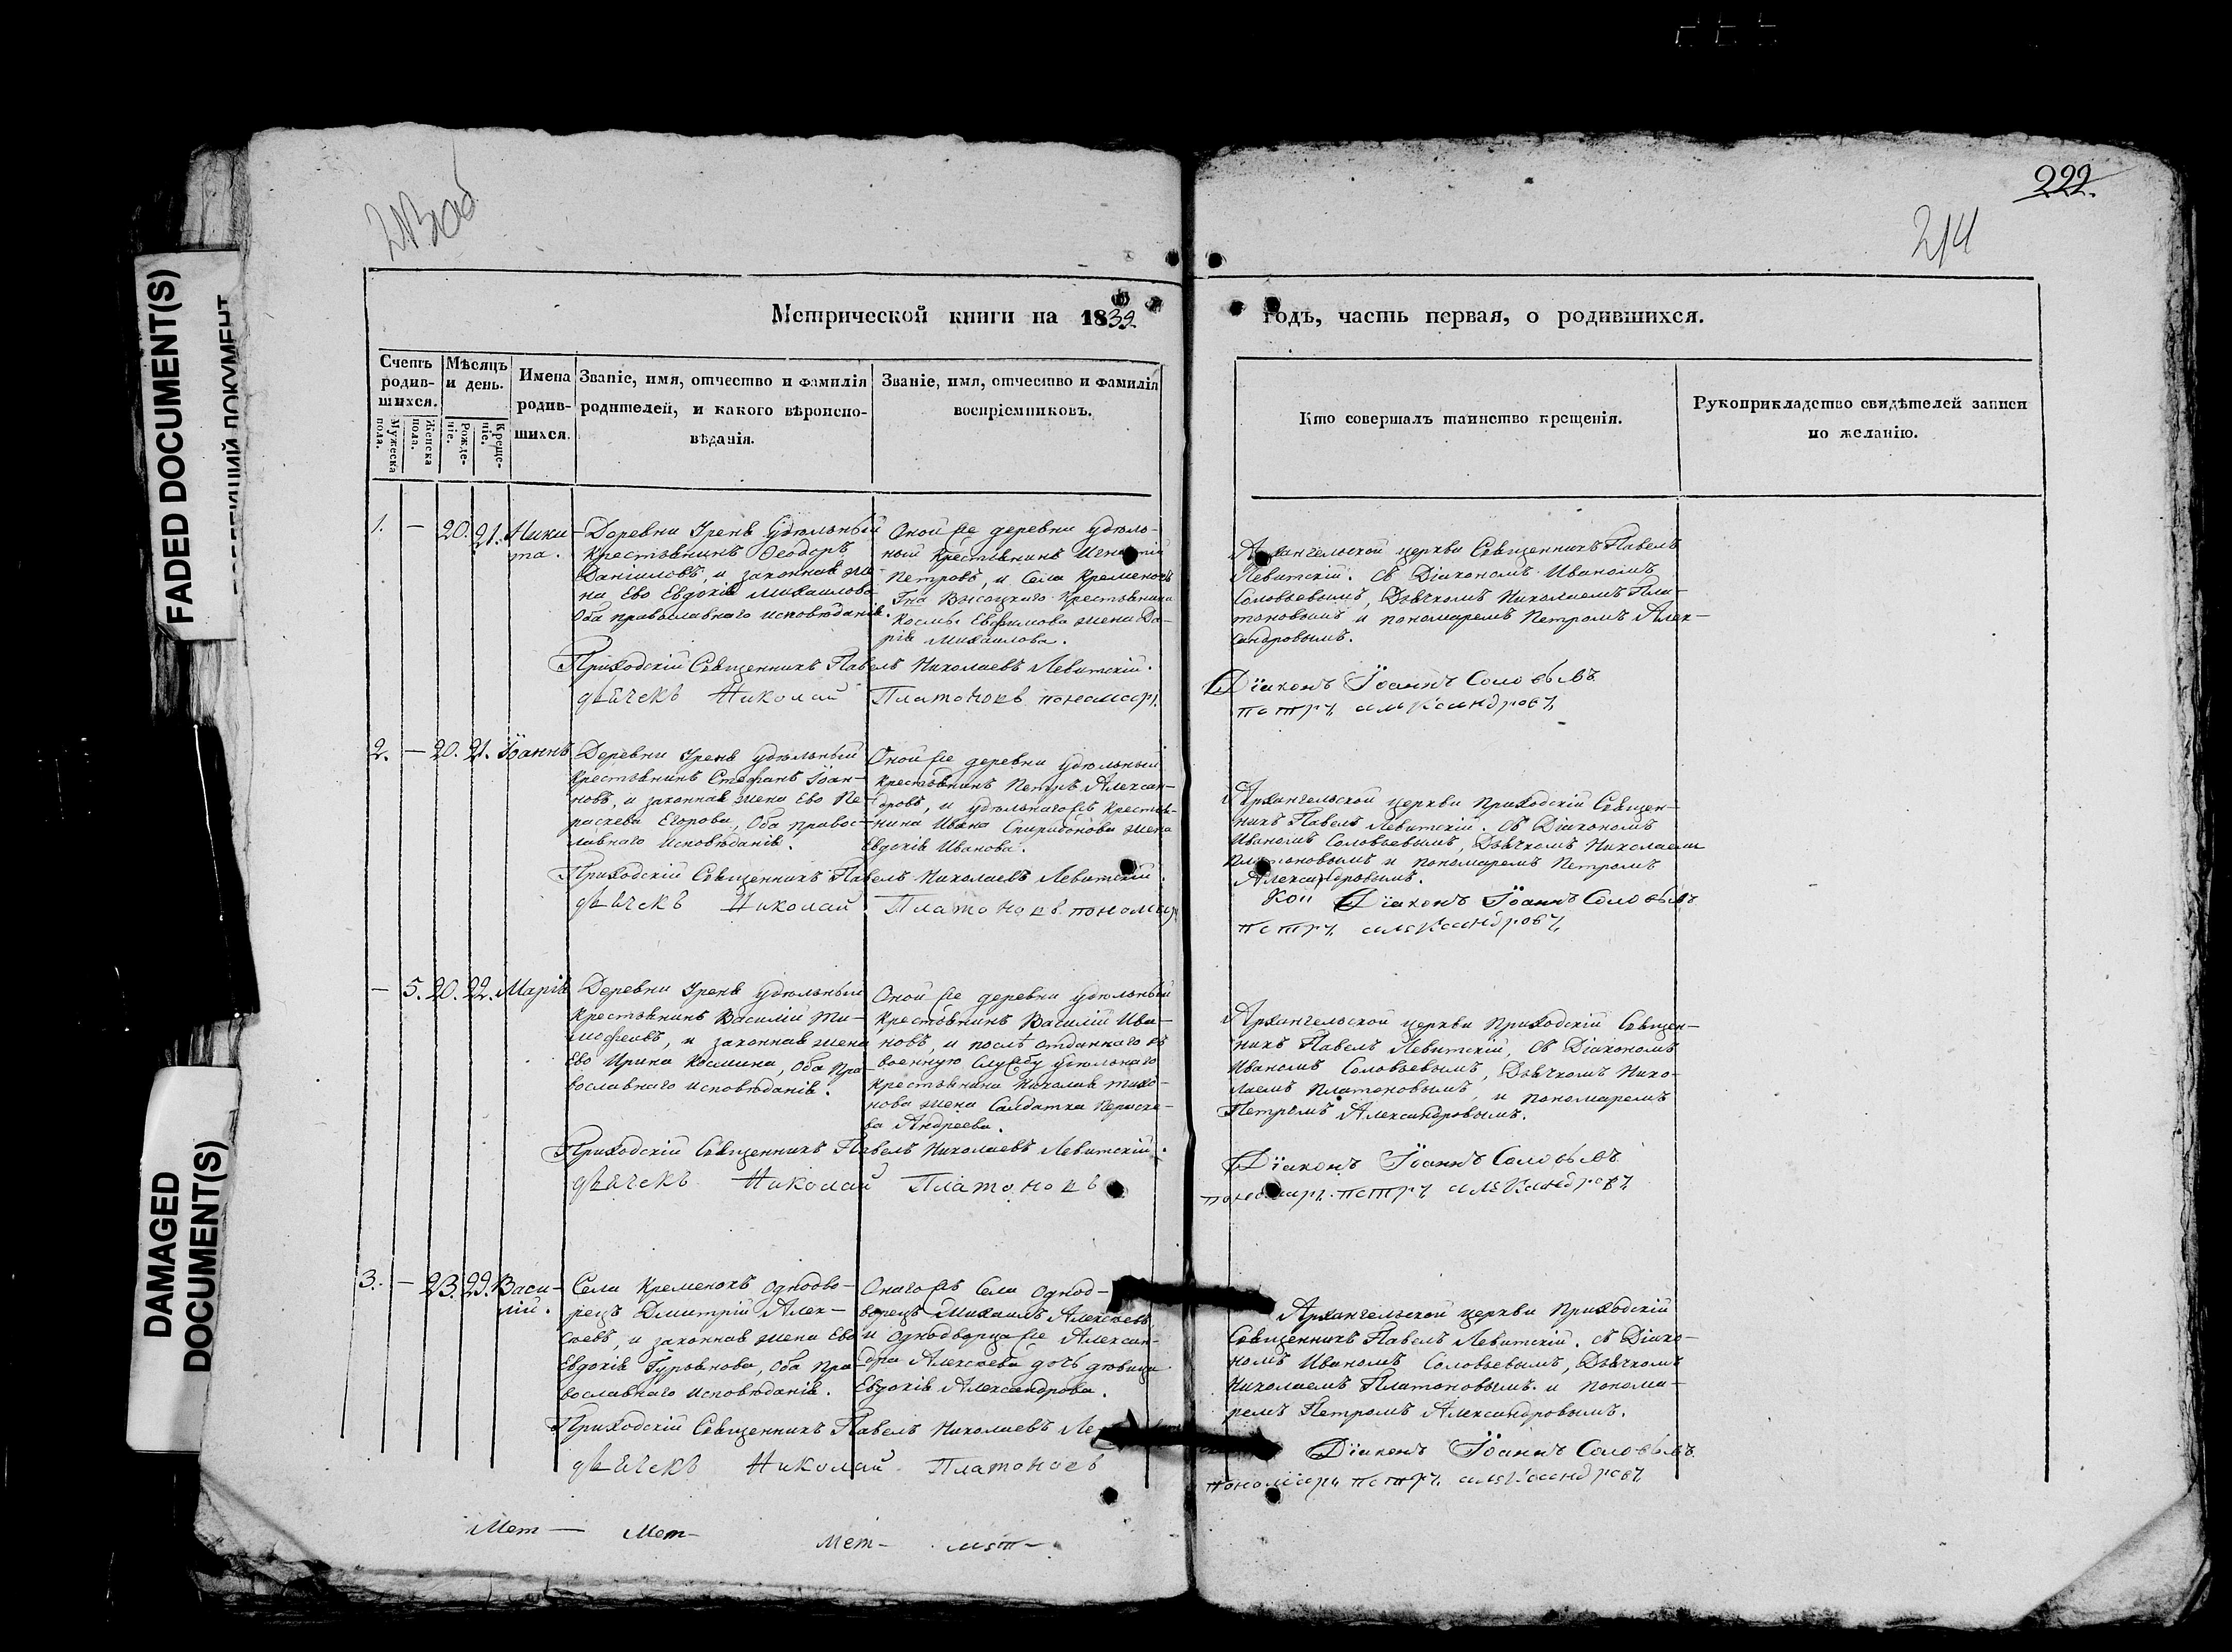 FADED DOCUMENT(S)
DAMAGED
DOCUMENT(S)
213об
222.
214
Метрической книги на 1839
годъ, часть первая, о родившихся.
Счетъ родив-шихся.
Мужеска пола.
Женска пола.
Мѣсяцъ и день.
Рожде-ніе.
Креще-ніе.
Имена родив-шихся.
Званіе, имя, отчество и фамилія
родителей, и какого вѣроиспо-
вѣданія.
Званіе, имя, отчество и фамилія
воспріемниковъ.
Кто совершалъ таинство крещенія.
Рукоприкладство свидѣтелей записи
по желанію.
1. — 20. 21. Ники-
та.
Деревни Урень удѣльный
крестьянинъ Ѳеодоръ
Даніиловъ, и законная же-
на Ево Евдокія Михаилова
Оба православнаго исповѣданія.
Оной же деревни удѣль-
ный крестьянинъ
Петровъ, и Села Кременокъ
Гна Высоцкаго крестьянина
Космы Евфимова жена Да-
рія Михаилова.
Архангельской церкви Священникъ Павелъ
Левитскій. съ Діакономъ Иваномъ
Соловьевымъ, Дьячкомъ Николаемъ Пла-
тоновымъ и пономаремъ Петромъ Алек-
сандровымъ.
Приходскій Священникъ Павелъ Николаевъ Левитскій.
Діаконъ Іоаннъ Соловьевъ
дьячекъ Николай Платоновъ пономарь
петръ александровъ
2. — 20. 21. Іоаннъ
Деревни Урень удѣльный
крестьянинъ Стефанъ Іоан-
новъ, и законная жена Ево Па-
раскева Егорова, Оба правос-
лавнаго исповѣданія.
Оной же деревни удѣльный
крестьянинъ Петръ Алексан-
дровъ, и удѣльнагожъ крестья-
нина Ивана Спиридонова жена
Евдокія Иванова.
Архангельской церкви Приходскій Священ-
никъ Павелъ Левитскій. съ Діакономъ
Иваномъ Соловьевымъ, Дьячкомъ Николаемъ
Платоновымъ и пономаремъ Петромъ
Александровымъ.
Приходскій Священникъ Павелъ Николаевъ Левитскій.
Діаконъ Іоаннъ Соловьевъ
дьячекъ Николай Платоновъ пономарь
петръ александровъ
— 5. 20. 22. Марія
Деревни Урень удѣльный
крестьянинъ Василій Ти-
мофеевъ, и законная жена
Ево Ирина Космина, Оба пра-
вославнаго исповѣданія.
Оной же деревни удѣльный
крестьянинъ Василій Ива-
новъ, и послѣ отданнаго въ
военную службу удѣльнаго
крестьянина Николая Тихо-
нова жена Салдатка Параске-
ва Андреева.
Архангельской церкви Приходскій Священ-
никъ Павелъ Левитскій, съ Діакономъ
Иваномъ Соловьевымъ, Дьячкомъ Нико-
лаемъ Платоновымъ, и пономаремъ
Петромъ Александровымъ.
Приходскій Священникъ Павелъ Николаевъ Левитскій.
Діаконъ Іоаннъ Соловьевъ
дьячекъ Николай Платоновъ
пономарь петръ александровъ
3. — 23. 29. Васи-
лій.
Села Кременокъ Однодво-
рецъ Дмитрій Алек-
сѣевъ, и законная жена Ево
Евдокія Гурьянова, Оба пра-
вославнаго исповѣданія.
Онагожъ Села Однод-
ворецъ Михаилъ Алексѣевъ
и Однодворца же Алексан-
дра Алексѣева дочь дѣвица
Евдокія Александрова.
Архангельской церкви Приходскій
Священникъ Павелъ Левитскій. съ Діако-
номъ Иваномъ Соловьевымъ, Дьячкомъ
Николаемъ Платоновымъ и понома-
ремъ Петромъ Александровымъ.
Приходскій Священникъ Павелъ Николаевъ
Діаконъ Іоаннъ Соловьевъ
дьячекъ Николай Платоновъ
пономарь петръ александровъ
Мет— Мет— Мет— мет—